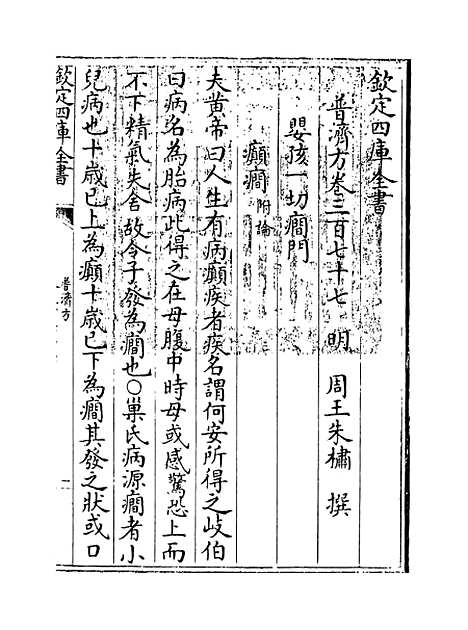 欽定四庫全書
普濟方卷三百七十七 明 周王朱橚 撰
嬰孩一切癎門
癲癎附論
夫黄帝曰人生有病癲疾者疾名謂何安所得之歧伯
曰病名為胎病此得之在母腹中時母或感驚恐上而
不下精氣失舍故令子發為癎也○巢氏病源癎者小
兒病也十歳已上為癲十歳已下為癎其發之狀或口
欽定四庫全書
普濟方